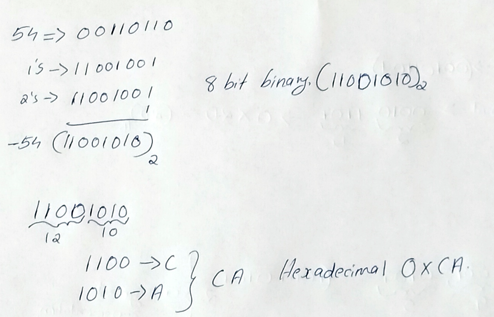 54 => 00110110
1's -> 11001001
2's -> 11001001
1
8 bit binary. (11001010)2
-54 (11001010)2
11001010
12 10
1100 -> C
1010 -> A
} CA Hexadecimal 0xCA.